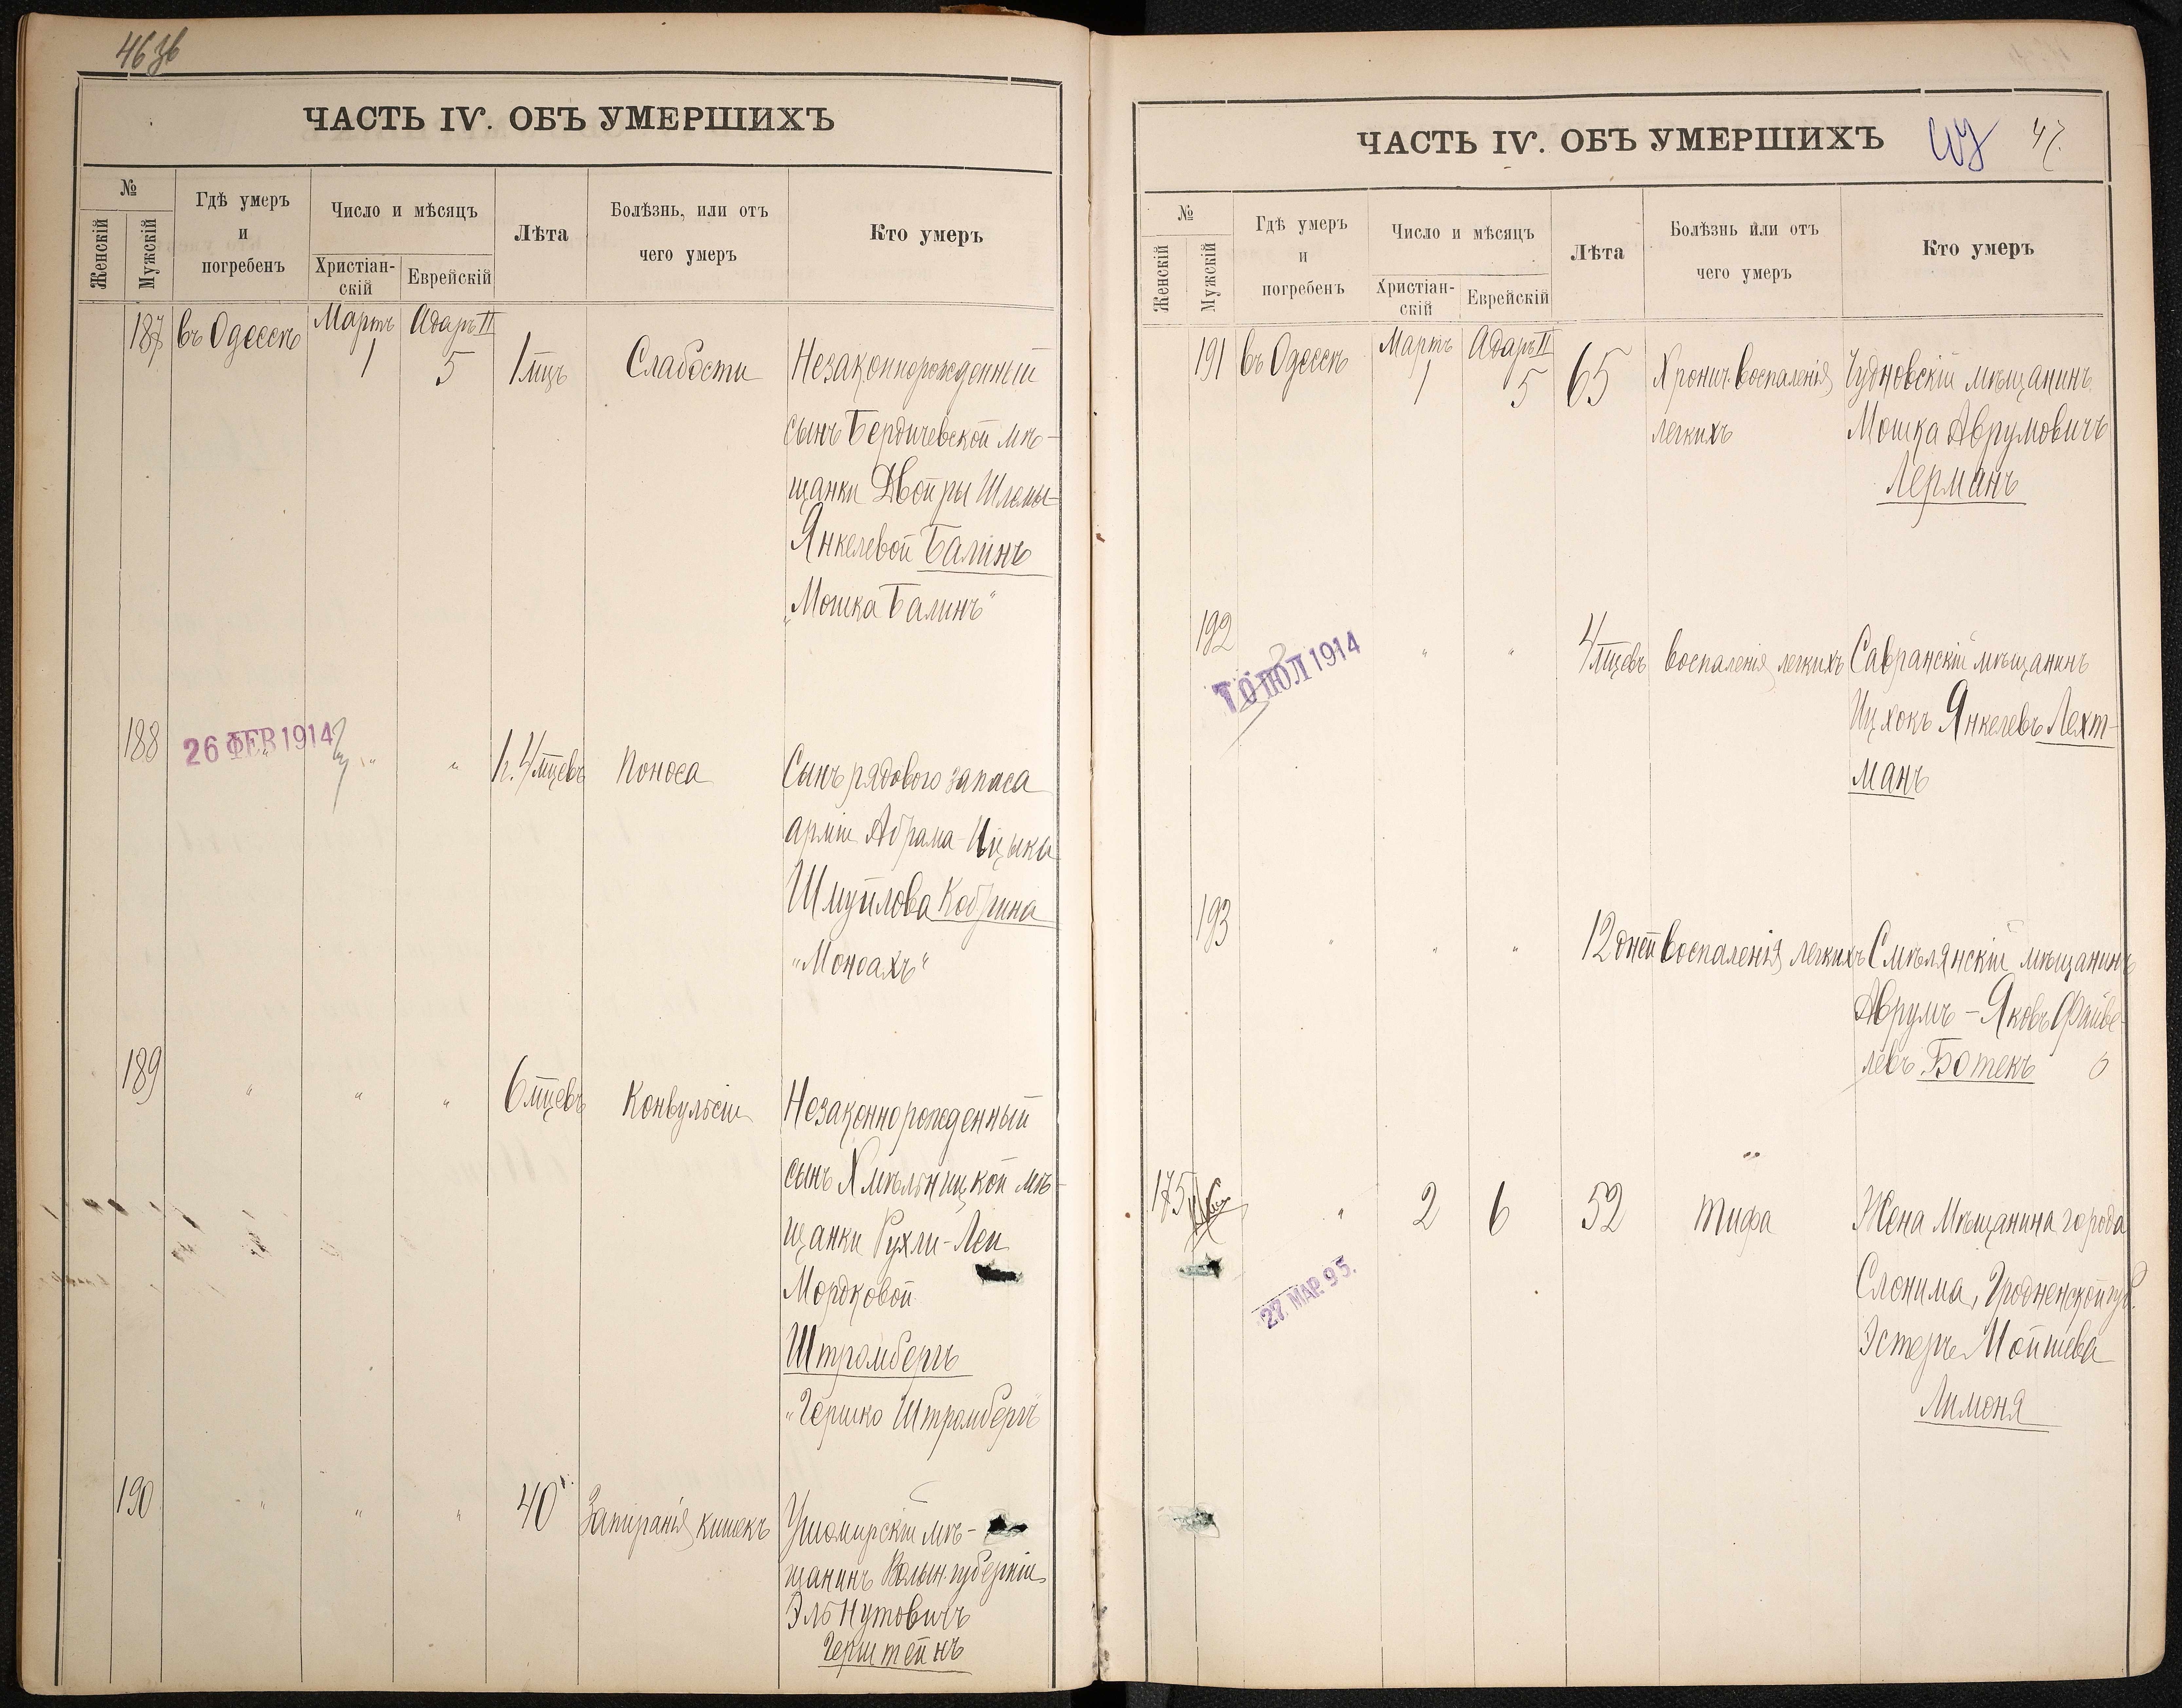 46 зв
ЧАСТЬ IV. ОБЪ УМЕРШИХЪ
№
Женскій
Мужскій
Гдѣ умеръ
и
погребенъ
Число и мѣсяцъ
Христіан-
скій
Еврейскій
Лѣта
Болѣзнь, или отъ
чего умеръ
Кто умеръ
187 въ Одессѣ Мартъ Адаръ II
1 5 1 мцъ Слабости Незаконнорожденный
сынъ Бердичевской мѣ-
щанки Двойры Шлемы-
Янкелевой Балинъ
„Мошка Балинъ"
188 26 ФЕВ 1914 " " 4 мцевъ Поноса Сынъ рядового запаса
арміи Абрама-Ицыка
Шмуйлова Кобрина
"Моноахъ"
189 " " " 6 мцевъ Конвульсіи Незаконнорожденный
сынъ Хмѣльницкой мѣ-
щанки Рухли-Леи
Мордковой
Штромбергъ
"Гершко Штромбергъ"
190 " " " 40 Запиранія кишекъ Ушомирскій мѣ-
щанинъ Волын. губерніи
Эль Нутовичъ
Герштейнъ
ЧАСТЬ IV. ОБЪ УМЕРШИХЪ 47.
№
Женскій
Мужскій
Гдѣ умеръ
и
погребенъ
Число и мѣсяцъ
Христіан-
скій
Еврейскій
Лѣта
Болѣзнь или отъ
чего умеръ
Кто умеръ
191 въ Одессѣ Мартъ Адаръ II
1 5 65 Хронич. воспаленія Чудновскій мѣщанинъ
легкихъ Мошка Аврумовичъ
Лерманъ
192 " " 4 мцевъ воспаленія легкихъ Савранскій мѣщанинъ
1914
Ицхокъ Янкелевъ Лехт-
манъ
193 " " " 12 дней Воспаленія легкихъ Смѣлянскій мѣщанинъ
Аврумъ-Яковъ Файве-
левъ Ботекъ
175 " 2 6 52 Тифа Жена мѣщанина города
27. МАР. 95.
Слонима, Гродненской губ.
Эстеръ Мойшева
Лимоня